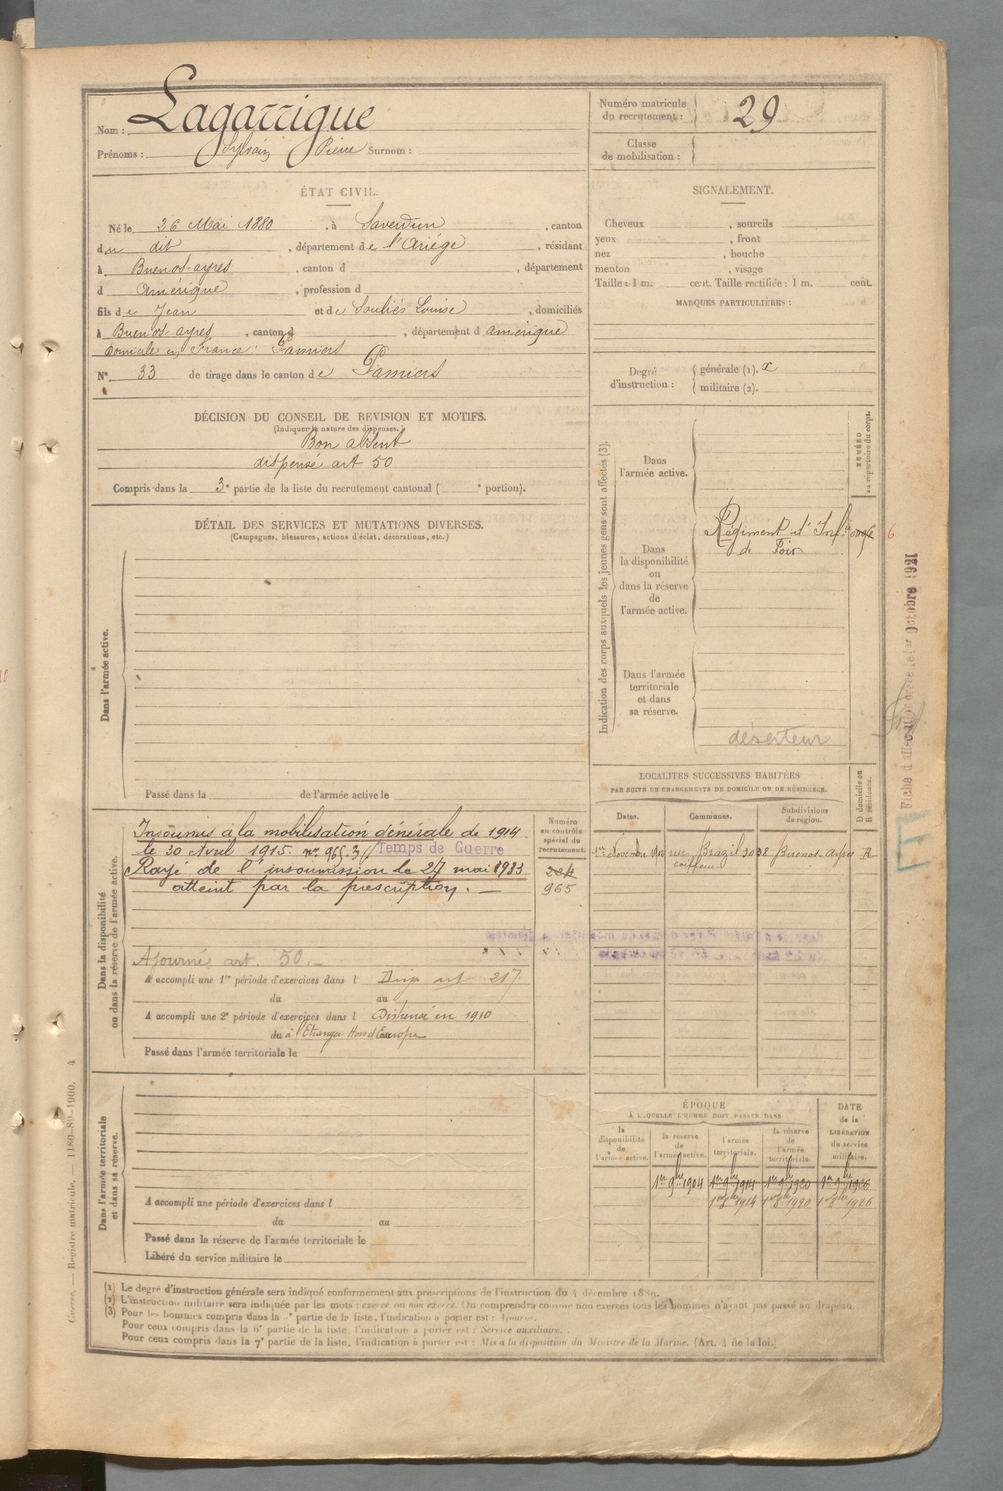 Nom : Lagarrigue
Prénoms : Sylvain Pierre Surnom :
Numéro matricule
du recrutement : 29
Classe
de mobilisation :
ÉTAT CIVIL.
Né le 26 Mai 1880, à Saverdun, canton
du dit, département de l'Ariége, résidant
à Buenos-ayres, canton d , département
d Amérique, profession d
fils de Jean et de Souliés Louise, domiciliés
à Buenos-ayres, canton d , département d amérique
domicile en France : Pamiers
N° 33 de tirage dans le canton de Pamiers
SIGNALEMENT.
Cheveux , sourcils
yeux , front
nez , bouche
menton , visage
Taille : 1 m. cent. Taille rectifiée : 1 m. cent.
MARQUES PARTICULIÈRES :
Degré
d'instruction :
générale (1). x
militaire (2).
DÉCISION DU CONSEIL DE REVISION ET MOTIFS.
(Indiquer la nature des dispenses.)
Bon absent
dispensé art 50
Compris dans la 3e partie de la liste du recrutement cantonal ( e portion).
DÉTAIL DES SERVICES ET MUTATIONS DIVERSES.
(Campagnes, blessures, actions d'éclat, décorations, etc.)
Dans l'armée active.
Passé dans la de l'armée active le
Indication des corps auxquels les jeunes gens sont affectés (3).
NUMÉRO
au répertoire du corps.
Dans
l'armée active.
Dans
la disponibilité
ou
dans la réserve
de
l'armée active.
Régiment d'Inf.ie
de Foix
6
Dans l'armée
territoriale
et dans
sa réserve.
déserteur
Fiche d'affectation 1er Octobre 1921
Dans la disponibilité
ou dans la réserve de l'armée active.
Insoumis à la mobilisation générale de 1914
le 30 Avril 1915. n° 965.3 Temps de Guerre
Rayé de l'insoumission le 27 mai 1933
atteint par la prescription. —
Numéro
au contrôle
spécial du
recrutement.
204
965
Ajournés art. 50. —
A accompli une 1re période d'exercices dans l Disp art 217
du au
A accompli une 2e période d'exercices dans l Dispensé en 1910
du à l'Etranger Hors d'Europe
Passé dans l'armée territoriale le
LOCALITÉS SUCCESSIVES HABITÉES
PAR SUITE DE CHANGEMENTS DE DOMICILE OU DE RÉSIDENCE.
D domicile ou
R résidence.
Dates.
Communes.
Subdivisions
de région.
1er Novembre 1900 rue Brazil 3038 Buenos-Ayres R
coiffeur
Dans l'armée territoriale
et dans sa réserve.
A accompli une période d'exercices dans l
du au
Passé dans la réserve de l'armée territoriale le
Libéré du service militaire le
ÉPOQUE
À LAQUELLE L'HOMME DOIT PASSER DANS
DATE
de la
LIBÉRATION
du service
militaire.
la
disponibilité
de
l'armée active.
la réserve
de
l'armée active.
l'armée
territoriale.
la réserve
de
l'armée
territoriale.
1er 9bre 1904 1er 9bre 1914 1er 9bre 1920 1er 9bre 1926
1er 8bre 1914 1er 8bre 1920 1er 8bre 1926
(1) Le degré d'instruction générale sera indiqué conformément aux prescriptions de l'instruction du 4 décembre 1889.
(2) L'instruction militaire sera indiquée par les mots : exercé ou non exercé. On comprendra comme non exercés tous les hommes n'ayant pas passé au drapeau.
(3) Pour les hommes compris dans la partie de la liste, l'indication à porter est : Ajourné.
Pour ceux compris dans la 6e partie de la liste, l'indication à porter est : Service auxiliaire.
Pour ceux compris dans la 7e partie de la liste, l'indication à porter est : Mis à la disposition du Ministre de la Marine. (Art. 4 de la loi.)
Guerre. — Registre matricule. 1180-89-1900. 4